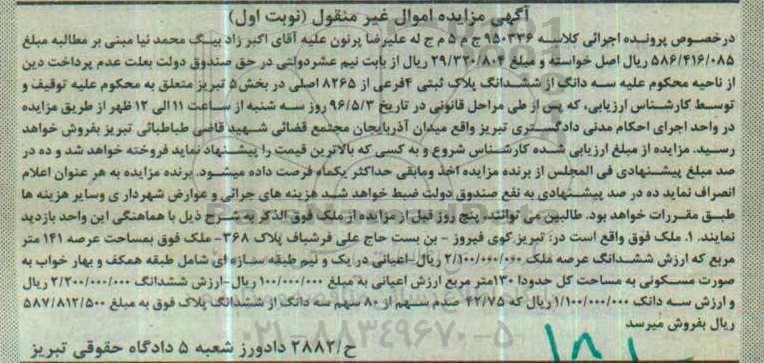 آگهی مزایده اموال غیر منقول (نوبت اول)
درخصوص پرونده اجرائی کلاسه ۹۵۰۳۳۶ ج م ۵ م ج له علیرضا پرتون علیه آقای اکبر زاد بیگ محمد نیا مبنی بر مطالبه مبلغ
۵۸۶/۴۱۶/۰۸۵ ریال اصل خواسته و مبلغ ۲۹/۳۳۰/۸۰۴ ریال از بابت نیم عشردولتی در حق صندوق دولت بعلت عدم پرداخت دین
از ناحیه محکوم علیه سه دانگ از ششدانگ پلاک ثبتی ۴فرعی از ۸۲۶۵ اصلی در بخش ۵ تبریز متعلق به محکوم علیه توقیف و
توسط کارشناس ارزیابی، که پس از طی مراحل قانونی در تاریخ ۹۶/۵/۳ روز سه شنبه از ساعت ۱۱ الی ۱۲ ظهر از طریق مزایده
در واحد اجرای احکام مدنی دادگستری تبریز واقع میدان آذربایجان مجتمع قضائی شهید قاضی طباطبائی تبریز بفروش خواهد
رسید. مزایده از مبلغ ارزیابی شده کارشناس شروع و به کسی که بالاترین قیمت را پیشنهاد نماید فروخته خواهد شد و ده در
صد مبلغ پیشنهادی فی المجلس از برنده مزایده اخذ ومابقی حداکثر یکماه فرصت داده میشود. برنده مزایده به هر عنوان اعلام
انصراف نماید ده در صد پیشنهادی به نفع صندوق دولت ضبط خواهد شد هزینه های جرائی و عوارض شهرداری وسایر هزینه ها
طبق مقررات خواهد بود. طالبین می توانند پنج روز قبل از مزایده از ملک فوق الذکر به شرح ذیل با هماهنگی این واحد بازدید
نمایند. ۱. ملک فوق واقع است در: تبریز کوی فیروز - بن بست حاج علی فرشباف پلاک ۳۶۸- ملک فوق بمساحت عرصه ۱۴۱ متر
مربع که ارزش ششدانگ عرصه ملک ۲/۱۰۰/۰۰۰/۰۰۰ ریال-اعیانی در یک و نیم طبقه سازه ای شامل طبقه همکف و بهار خواب به
صورت مسکونی به مساحت کل حدودا ۱۳۰متر مربع ارزش اعیانی به مبلغ ۱۰۰/۰۰۰/۰۰۰ ریال-ارزش ششدانگ ۲/۲۰۰/۰۰۰/۰۰۰ ریال
و ارزش سه دانگ ۱/۱۰۰/۰۰۰/۰۰۰ ریال که ۴۲/۷۵ صدم سهم از ۸۰ سهم سه دانگ از ششدانگ پلاک فوق به مبلغ ۵۸۷/۸۱۲/۵۰۰
ریال بفروش میرسد
ح/۲۸۸۲ دادورز شعبه ۵ دادگاه حقوقی تبریز
۰۲۱-۸۸۳۴۹۶۷۰-۵